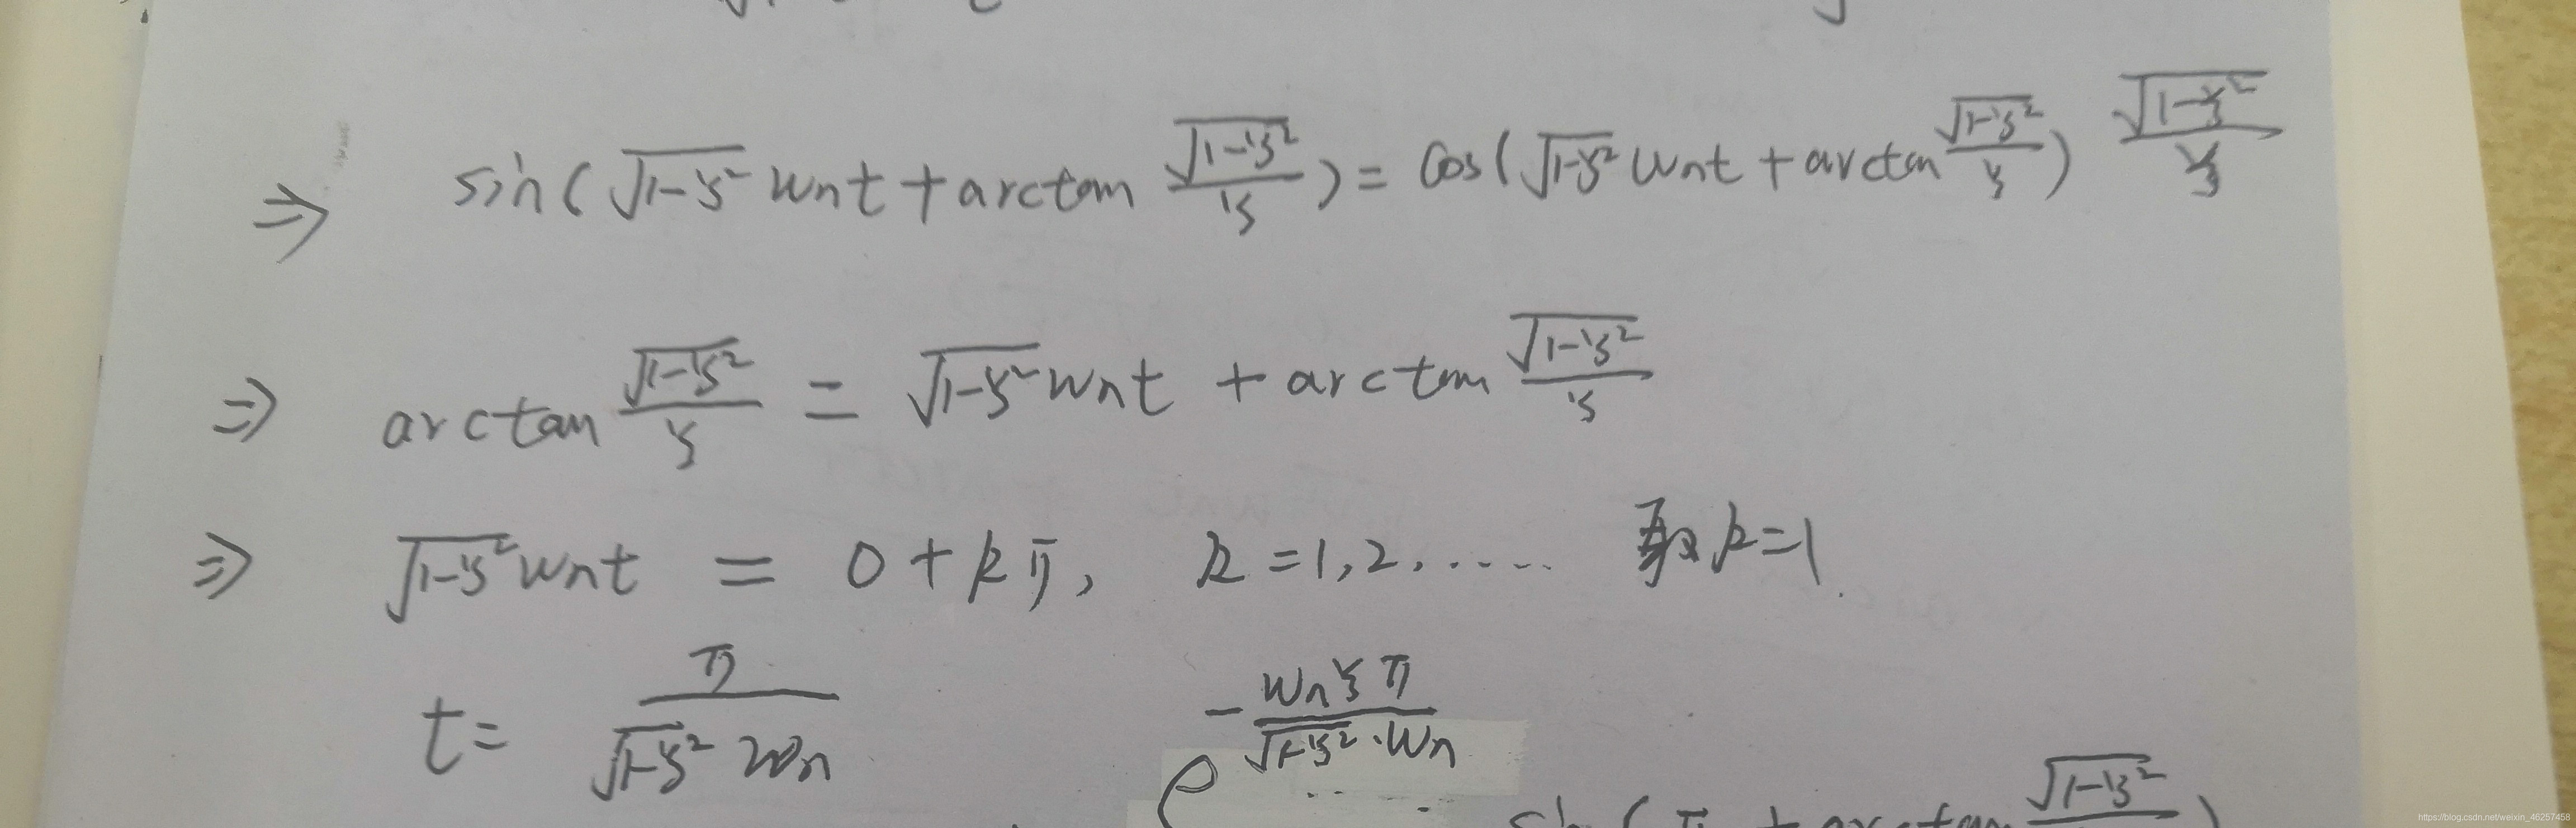 ⇒ sin(√(1-ξ²) wnt + arctan √(1-ξ²)/ξ) = cos(√(1-ξ²) wnt + arctan √(1-ξ²)/ξ) √(1-ξ²)/ξ
⇒ arctan √(1-ξ²)/ξ = √(1-ξ²) wnt + arctan √(1-ξ²)/ξ
⇒ √(1-ξ²) wnt = 0 + kπ, k = 1, 2, ····· 取 k = 1
t = π/(√(1-ξ²) wn) e^(-wnξπ/(√(1-ξ²)·wn))
sin(π + arctan √(1-ξ²)
https://blog.csdn.net/weixin_46257458